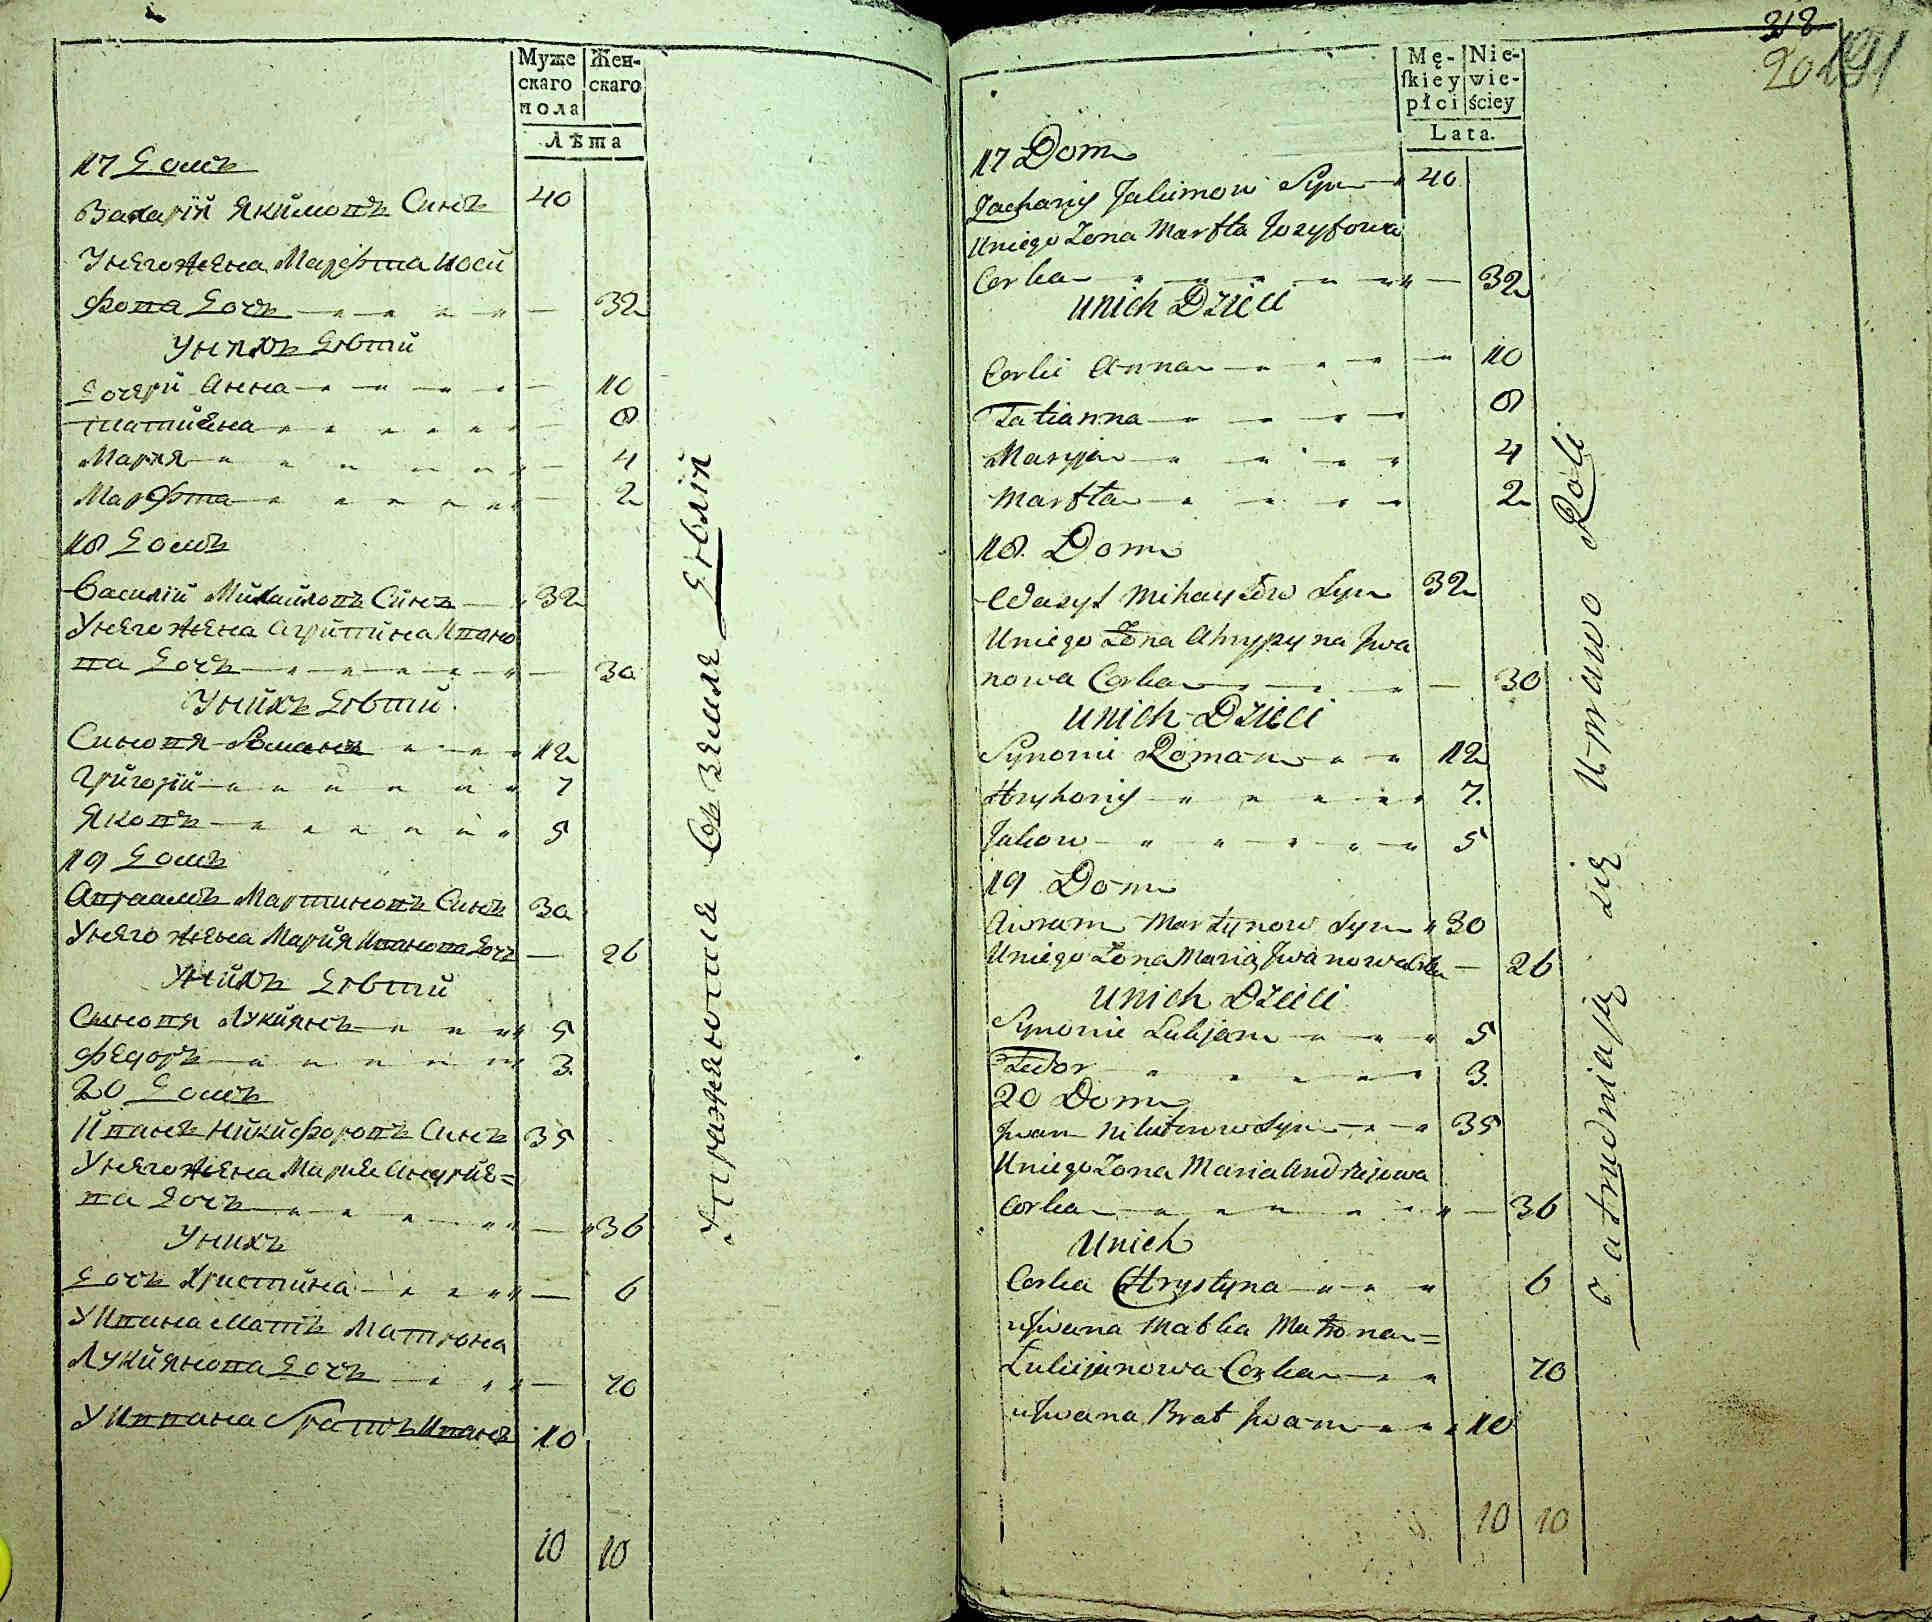 Муже Жен-
скаго скаго
пола
Лѣта
17 Домъ
Захарїй Якимовъ Синъ 40
Унего жена Марфта Иоси
фова Дочъ 32
Унихъ Дѣти
Дочери Анна 10
Татияна 8
Мария 4
Марфта 2
18 Домъ
Василїй Михайловъ Синъ 32
Унего жена Агрипина Ивано
ва Дочъ 30
Унихъ Дѣти
Синовя Романъ 12
Григорїй 7
Яковъ 5
19 Домъ
Авраамъ Мартиновъ Синъ 30
Унего жена Мария Иванова Дочъ 26
Унихъ Дѣти
Синовя Лукиянъ 5
Федоръ 3
20 Домъ
Иванъ Никифоровъ Синъ 35
Унего жена Мария Андрие=
ва Дочъ 36
Унихъ
Дочъ Христина 6
У Ивана Мать Матрона
Лукиянова Дочъ 70
У Ивана Братъ Иванъ 10
10 10
Упражняютця Въ земле Дѣлїи
318
20 191
Mę- Nie-
ſkiey wie-
płci ściey
Lata.
17 Dom
Zachariy Jakimow Syn 40
Uniego Zona Marfta Jozyfowa
Corka 32
unich Dzieci
Corki Anna 10
Tatianna 8
Maryja 4
Marfta 2
18. Dom
Wasyl Mihayłow Syn 32
Uniego Zona Ahrypyna Jwa
nowa Corka 30
unich Dzieci
Synowie Roman 12
Hryhoriy 7.
Jakow 5
19 Dom
Awram Martynow Syn 30
Uniego Zona Maria Jwanowa Corka 26
unich Dzieci
Synowie Lukjan 5
Fedor 3.
20 Dom
Jwan Nikiforow Syn 35
Uniego Zona Maria Andrejowa
corka 36
Unich
Corka Chrystyna 6
uJwana Matka Matrona=
Łukijanowa Corka 70
uJwana Brat Jwan 10
10 10
zatrudniają się uprawo Roli